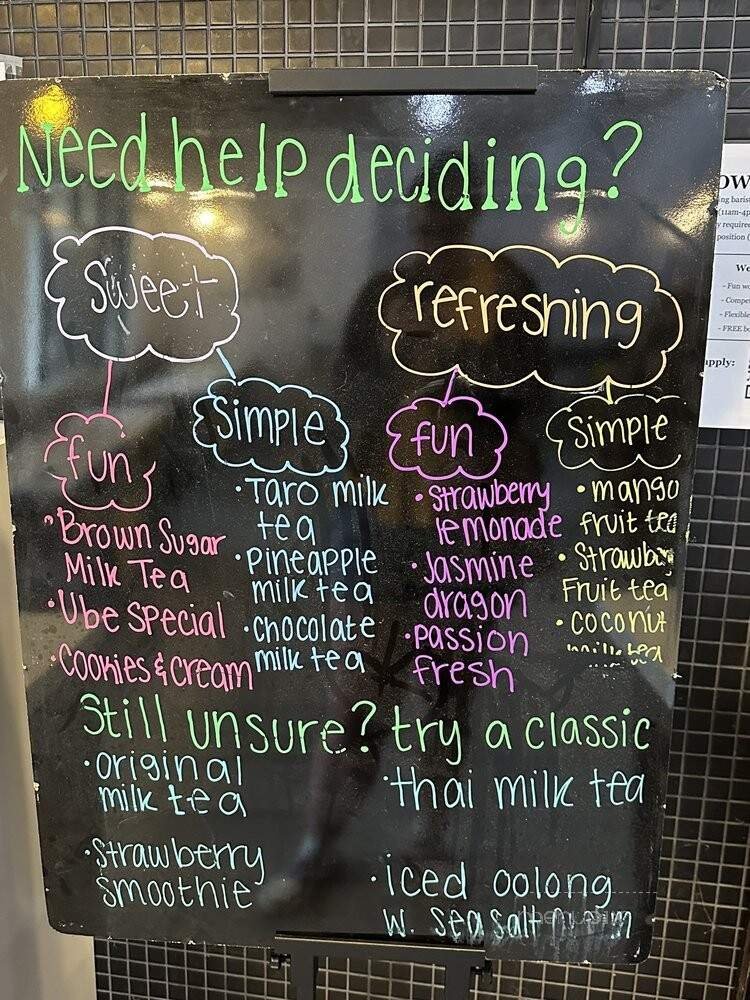 Need help deciding?
sweet
refreshing
fun
simple
fun
simple
• Brown Sugar
Milk Tea
• Ube Special
• Cookies & Cream
• Taro milk
tea
• pineapple
milk tea
• chocolate
milk tea
• strawberry
lemonade
• Jasmine
dragon
• passion
fresh
• mango
fruit tea
•
Fruit tea
• coconut
milk tea
Still unsure? try a classic
• original
milk tea
• thai milk tea
• strawberry
smoothie
• iced oolong
w. sea salt
(11am-4p
position (
- Fun wo
- Compe
- Flexible
apply: